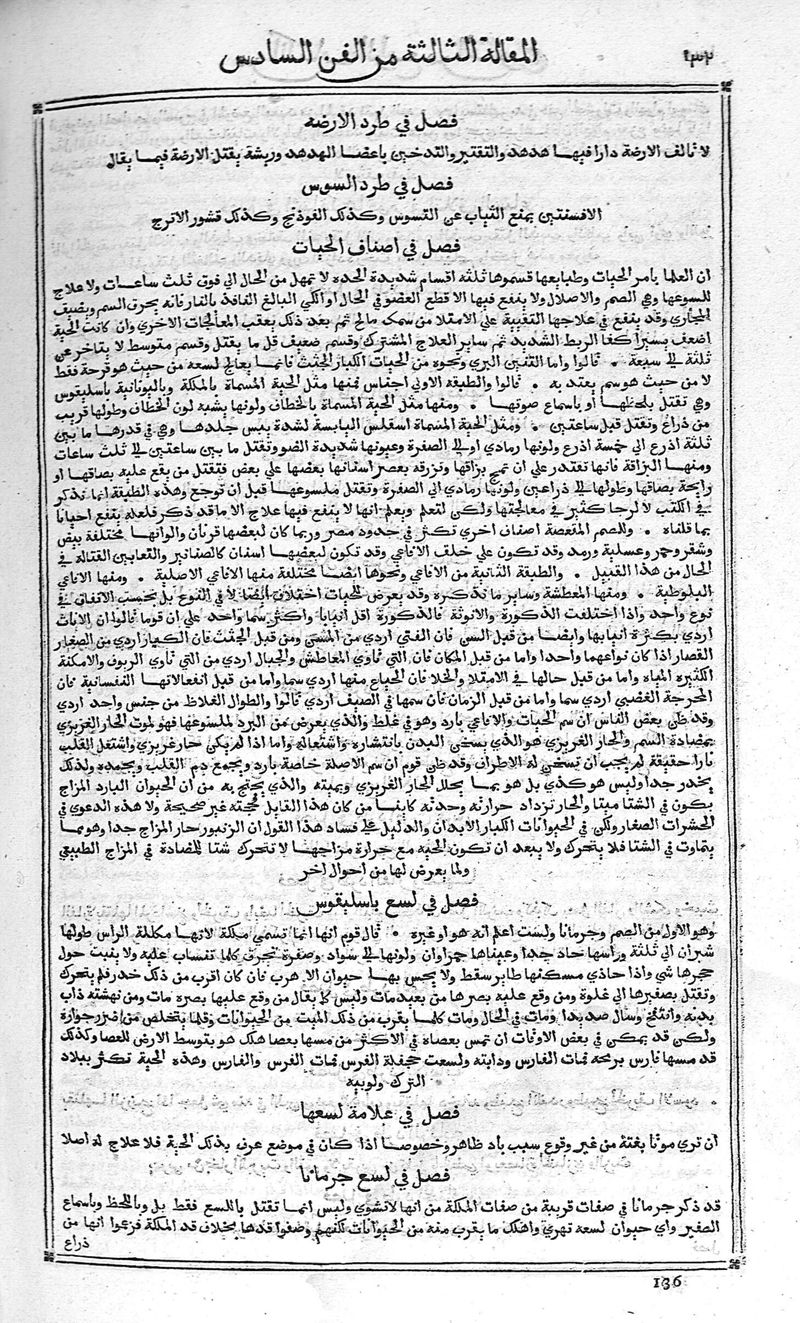 ١٣٢ المقالة الثالثة من الفن السادس
فصل في طرد الارضة
لا تالف الارضة دارا فيها هدهد والتقتير والتدخين باعضا الهدهد وريشة يقتل الارضة فيما يقال
فصل في طرد السوس
الافسنتين يمنع الثياب عن التسوس وكذلك الفوذنج وكذلك قشور الاترج
فصل في اصناف الحيات
ان العلما بامر الحيات وطبايعها قسموها ثلثه اقسام شديدة الحده لا تمهل من الحال الي فوق ثلث ساعات ولا علاج
للسوعها وهي الصم والاصلال ولا ينفع فيها الا قطع العضو في الحال او الكي البالغ النافذ بالنار فانه يحرق السم ويضيف
المجاري وقد ينفع في علاجها التقيية علي الامتلا من سمك مالح ثم بعد ذلك يعقب المعالجات الاخري وان كانت الحية
اضعف يسيرا كفا الربط الشديد ثم ساير العلاج المشترك وقسم ضعيف قل ما يقتل وقسم متوسط لا يتاخر عن
ثلثة الي سبعة ٠ قالوا واما التنين البري ونحوه من الحيات الكبار الجثث فانما يعالج لسعه من حيث هو قرحة فقط
لا من حيث هو سم يعتد به ٠ قالوا والطبقه الاولي اجناس فمنها مثل الحية المسماة بالمكلة وباليونانية باسليقوس
وهي تقتل بلحظها او باسماع صوتها ٠ ومنها مثل الحية المسماة بالخطاف ولونها يشبه لون الخطاف وطولها قريب
من ذراع وتقتل قبل ساعتين ٠ ومثل الحية المسماة اسقلس اليابسة لشدة يبس جلدها وهي في قدرها ما بين
ثلثة اذرع الي خمسة اذرع ولونها رمادي او الي الصفرة وعيونها شديدة الضو وتقتل ما بين ساعتين الي ثلث ساعات
ومنها البزاقة فانها تقتدر علي ان تمج بزاقها وتزرقه بعصر اسنانها بعضها علي بعض فتقتل من يقع عليه بصاقها او
رايحة بصاقها وطولها الي ذراعين ولونها رمادي الي الصفرة وتقتل ملسوعها قبل ان توجع وهذه الطبقة انما تذكر
في الكتب لا لرجا كثير في معالجتها ولكن لتعلم ويعلم انها لا ينفع فيها علاج الا ما قد ذكر فلعله ينفع احيانا
بما قلناه ٠ وللصم المقعصة اصناف اخري تكثر في حدود مصر وربما كان لبعضها قرنان والوانها مختلفة بيض
وشقر وحمر وعسلية ورمد وقد تكون علي خلف الافاعي وقد تكون لبعضها اسنان كالصنانير والثعابين القتالة في
الحال من هذا القبيل ٠ والطبقة الثانية من الافاعي ونحوها ايضا مختلفة منها الافاعي الاصلية ٠ ومنها الافاعي
البلوطية ٠ ومنها المعطشة وساير ما نذكره وقد يعرض للحيات اختلاف ايضا لا في النوع بل بحسب الاتفاق في
نوع واحد واذا اختلفت الذكورة والانوثة فالذكورة اقل انيابا واكثر سما واحد علي ان قوما قالوا ان الاناث
اردي بكثرة انيابها وايضا من قبل السن فان الفتي اردي من المسن ومن قبل الجثث فان الكبار اردي من الصغار
القصار اذا كان نوعاهما واحدا واما من قبل المكان فان التي تاوي المعاطش والجبال اردي من التي تاوي الريوف والامكنة
الكثيره المياه واما من قبل حالها في الامتلا والخلا فان الجياع منها اردي سما واما من قبل انفعالاتها النفسانية فان
المحرجة الغضبي اردي سما واما من قبل الزمان فان سمها في الصيف اردي قالوا والطوال الغلاظ من جنس واحد اردي
وقد ظن بعض الناس ان سم الحيات والافاعي بارد وهو في غلط والذي يعرض من البرد لملسوعها فهو لموت الحار الغريزي
بمضادة السم والحار الغريزي هو الذي يسخن البدن بانتشاره واشتعاله واما اذا لم يكن حار غريزي واشتعل القلب
نارا حقيقة لم يجب ان تسخن له الاطراف وقد ظن قوم ان سم الاصلة خاصية بارد ويجمع دم القلب ويجمده ولذلك
يخدر جدا وليس هو كذي بل هو بما يحلل الحار الغريزي ويميته والذي يحتج به من ان الحيوان البارد المزاج
يكون في الشتا ميتا والحار تزداد حرارته وحدته كاينا من كان هذا القايل فحجته غير صحيحة ولا هذه الدعوي في
الحشرات الصغار ولكن في الحيوانات الكبار الابدان والدليل علي فساد هذا القول ان الزنبور حار المزاج جدا وهو مما
يتماوت في الشتا فلا يتحرك ولا يبعد ان تكون الحية مع حرارة مزاجها لا تتحرك شتا للمضادة في المزاج الطبيعي
ولما يعرض لها من احوال اخر
فصل في لسع باسليقوس
وهو الاول من الصم وجرمانا ولست اعلم انه هو او غيره ٠ قال قوم انها انما تسمي مكلة لانها مكللة الراس طولها
شبران الي ثلثة وراسها حاد جدا وعيناها حمراوان ولونها الي سواد وصفرة تحرق كلما تنساب عليه ولا ينبت حول
جحرها شي واذا حاذي مسكنها طاير سقط ولا يحس بها حيوان الا هرب فان كان اقرب من ذلك خدر فلم يتحرك
وتقتل بصفيرها الي غلوة ومن وقع عليه بصرها من بعيد مات وليس كما يقال من وقع عليها بصره مات ومن نهشته ذاب
بدنه وانتفخ وسال صديدا ومات في الحال ومات كلما يقرب من ذلك الميت من الحيوانات وقلما يتخلص من اضرر جوارة
ولكن قد يمكن في بعض الاوقات ان تمس بعصاه في الاكثر من مسها بعصا هلك هو بتوسط الارض للعصا وكذلك
قد مسها فارس برمحه فمات الفارس ودابته ولسعت جحفلة الفرس فمات الفرس والفارس وهذه الحية تكثر ببلاد
٠ الترك ولوبيه
فصل في علامة لسعها
ان تري موتا بغتة من غير وقوع سبب باد ظاهر وخصوصا اذا كان في موضع عرف بذلك الحية فلا علاج له اصلا
فصل في لسع جرمانا
قد ذكر جرمانا في صفات قريبة من صفات المكلة من انها لا تشوي وليس انما تقتل باللسع فقط بل وباللحظ وباسماع
الصفير واي حيوان لسعه تهري واهلك ما يقرب منه من الحيوانات لكنهم وصفوا قدها بخلاف قد المكلة فزعوا انها من
ذراع
136